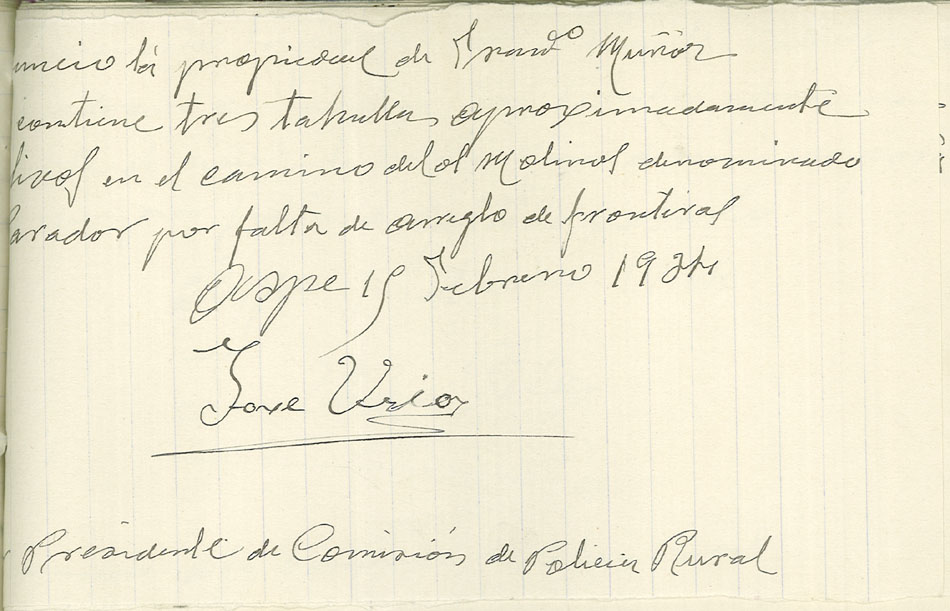 uncio la propiedad de Franco Muñoz
contiene tres tahullas aproximadamente
livos en el camino de los Molinos denominado
arador por falta de arreglo de frontiras
Aspe 15 Febrero 1934
Jose
Presidente de Comisión de Policia Rural